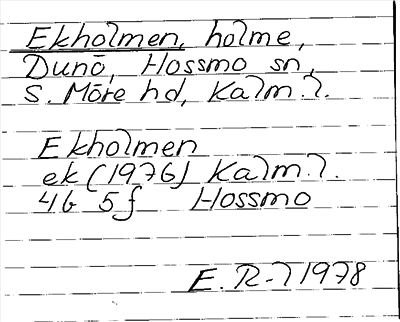 Ekholmen, holme,
Dunö, Hossmo sn,
S. Möre hd, Kalm.l.
Ekholmen
ek (1976) Kalm.l.
4G 5f Hossmo
E. R-l 1978